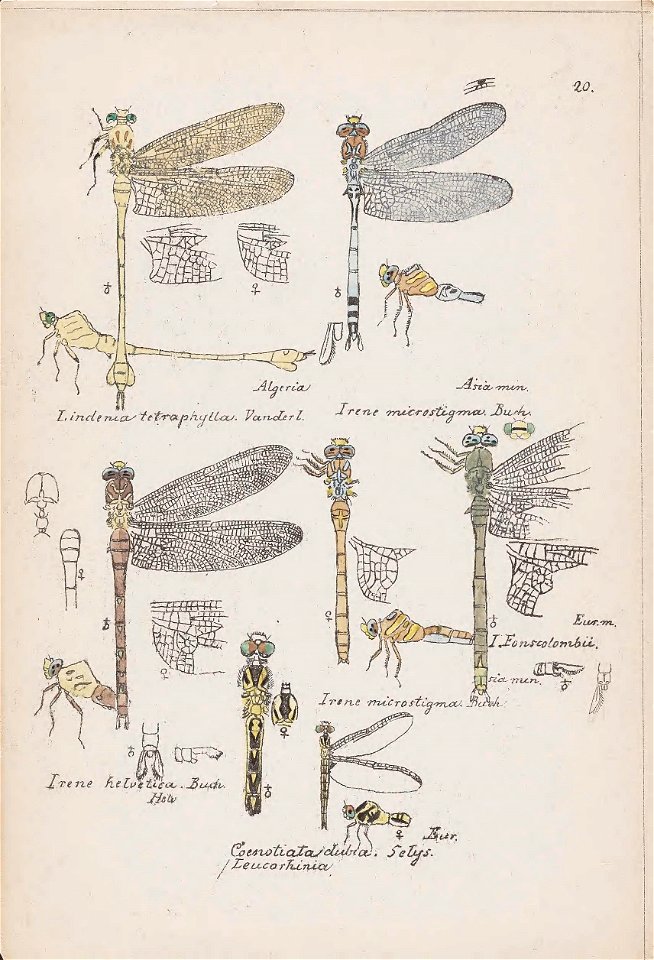 20.
♂
♀
♂
Algeria
Asia min.
Lindenia tetraphylla. Vanderl.
Irene microstigma. Buch.
♀
♂
♀
♂
Eur. m.
I. Fonscolombii.
♀
sia men.
♂
Irene microstigma. Buch.
♂
♀
Irene helvetica. Buch.
Helv
♂
♀
Eur.
Coenotiata dubia. Selys.
Leucorhinia